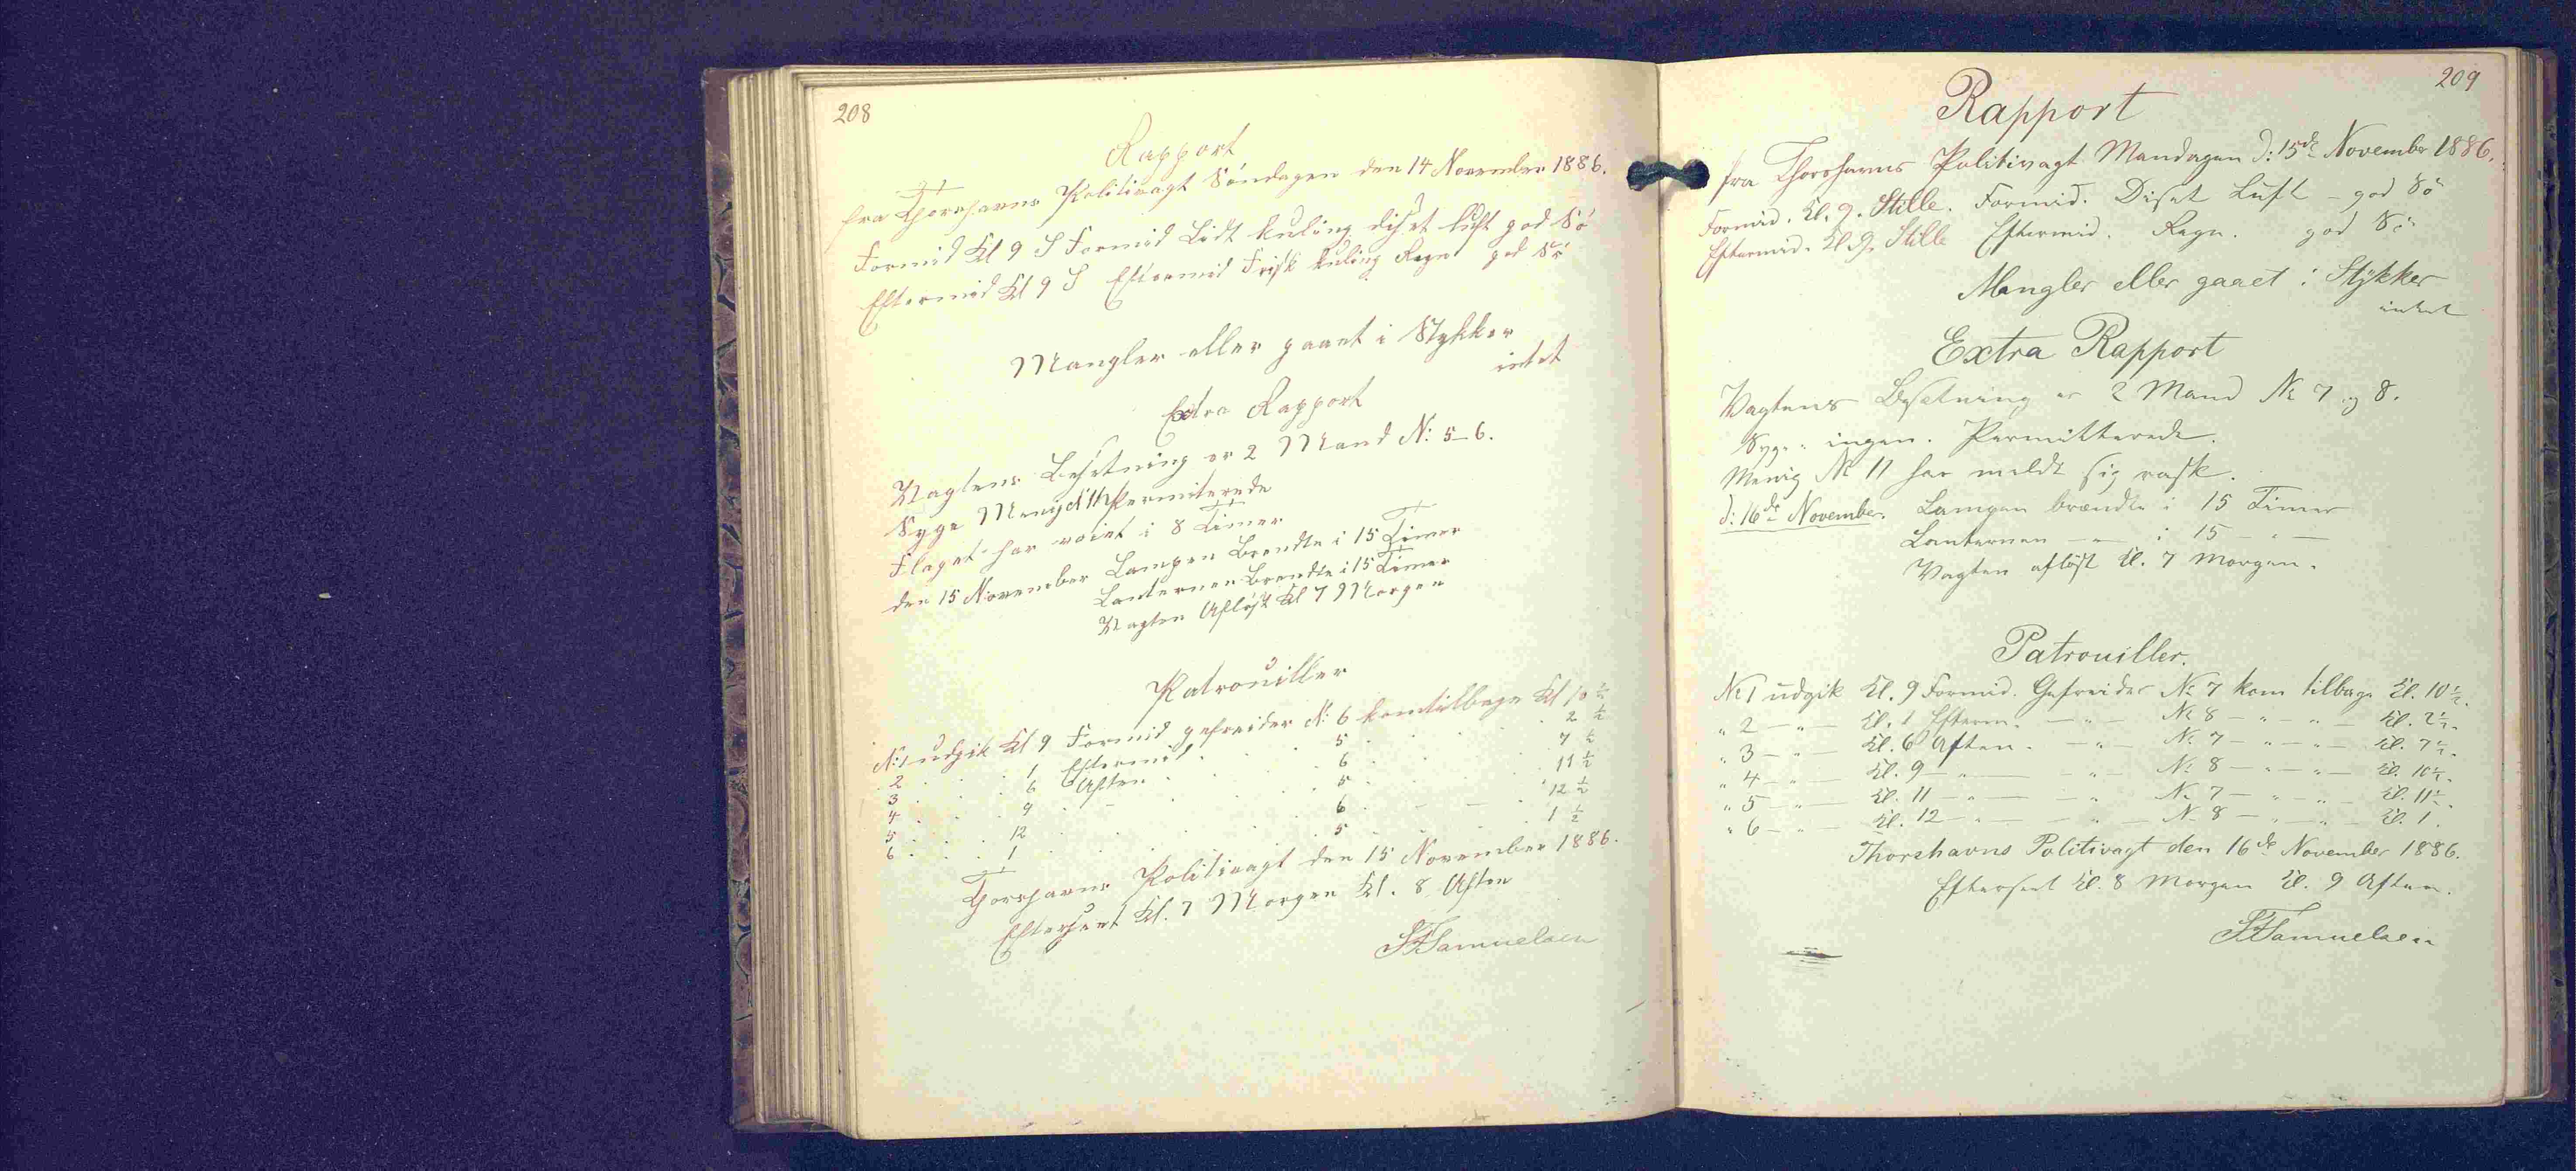 208
Rapport
fra Thorshavns Politivagt Söndagen den 14 November 1886.
Formid Kl 9 S Formid Lidt kuling diset luft god Sö
Eftermid Kl 9 S Eftermid Frisk kuling Regn god Sö
Mangler eller gaaet i Stykker
intet
Extra Rapport
Vagtens Besetning er 2 Mand N: 5-6.
Syge Menig N 11 Permiterede
Flaget har vaiet i 8 Timer
den 15 November Lampen Brendte i 15 Timer
Lanternen Brendte i 15 Timer
Vagten Aflöst Kl 7 Morgen
Patrouiller
N: 1 udgik Kl 9 Formid gefreider N: 6 kom tilbage Kl 10 ½
2 . . . 1 Eftermid . . . 5 . . . 2 ½
3 . . . 6 Aften . . . 6 . . . 7 ½
4 . . . 9 . . . 5 . . . 11 ½
5 . . . 12 . . . 6 . . . 12 ½
6 . . . 1 . . . 5 . . . 1 ½
Thorshavns Politivagt den 15 November 1886.
Efterseet Kl. 7 Morgen Kl. 8 Aften
Samuelsen
209
Rapport
fra Thorshavns Politivagt Mandagen d: 15de November 1886.
Formid. Kl. 9. Stille. Formid. Diset Luft – god Sö
Eftermid. Kl. 9. Stille Eftermid. Regn. god Sö
Mangler eller gaaet i Stykker
intet
Extra Rapport
Vagtens Besetning er 2 Mand No 7 og 8.
Syge: ingen. Permitterede.
Menig No 11 har meldt sig rask.
d: 16de November. Lampen brændte i 15 Timer
Lanternen — " — i 15 — " —
Vagten aflöst Kl. 7 Morgen.
Patrouiller.
No 1 udgik Kl. 9 Formid. Gefreider No 7 kom tilbage Kl. 10½.
" 2 — " — Kl. 1 Efterm. — " — No 8 — " — " — Kl. 2½.
" 3 — " — Kl. 6 Aften. — " — No 7 — " — " — Kl. 7½.
" 4 — " — Kl. 9 — " — — " — No 8 — " — " — Kl. 10½.
" 5 — " — Kl. 11 — " — — " — No 7 — " — " — Kl. 11½.
" 6 — " — Kl. 12 — " — — " — No 8 — " — " — Kl. 1.
Thorshavns Politivagt den 16de November 1886.
Efterseet Kl. 8 Morgen Kl. 9 Aften.
Samuelsen